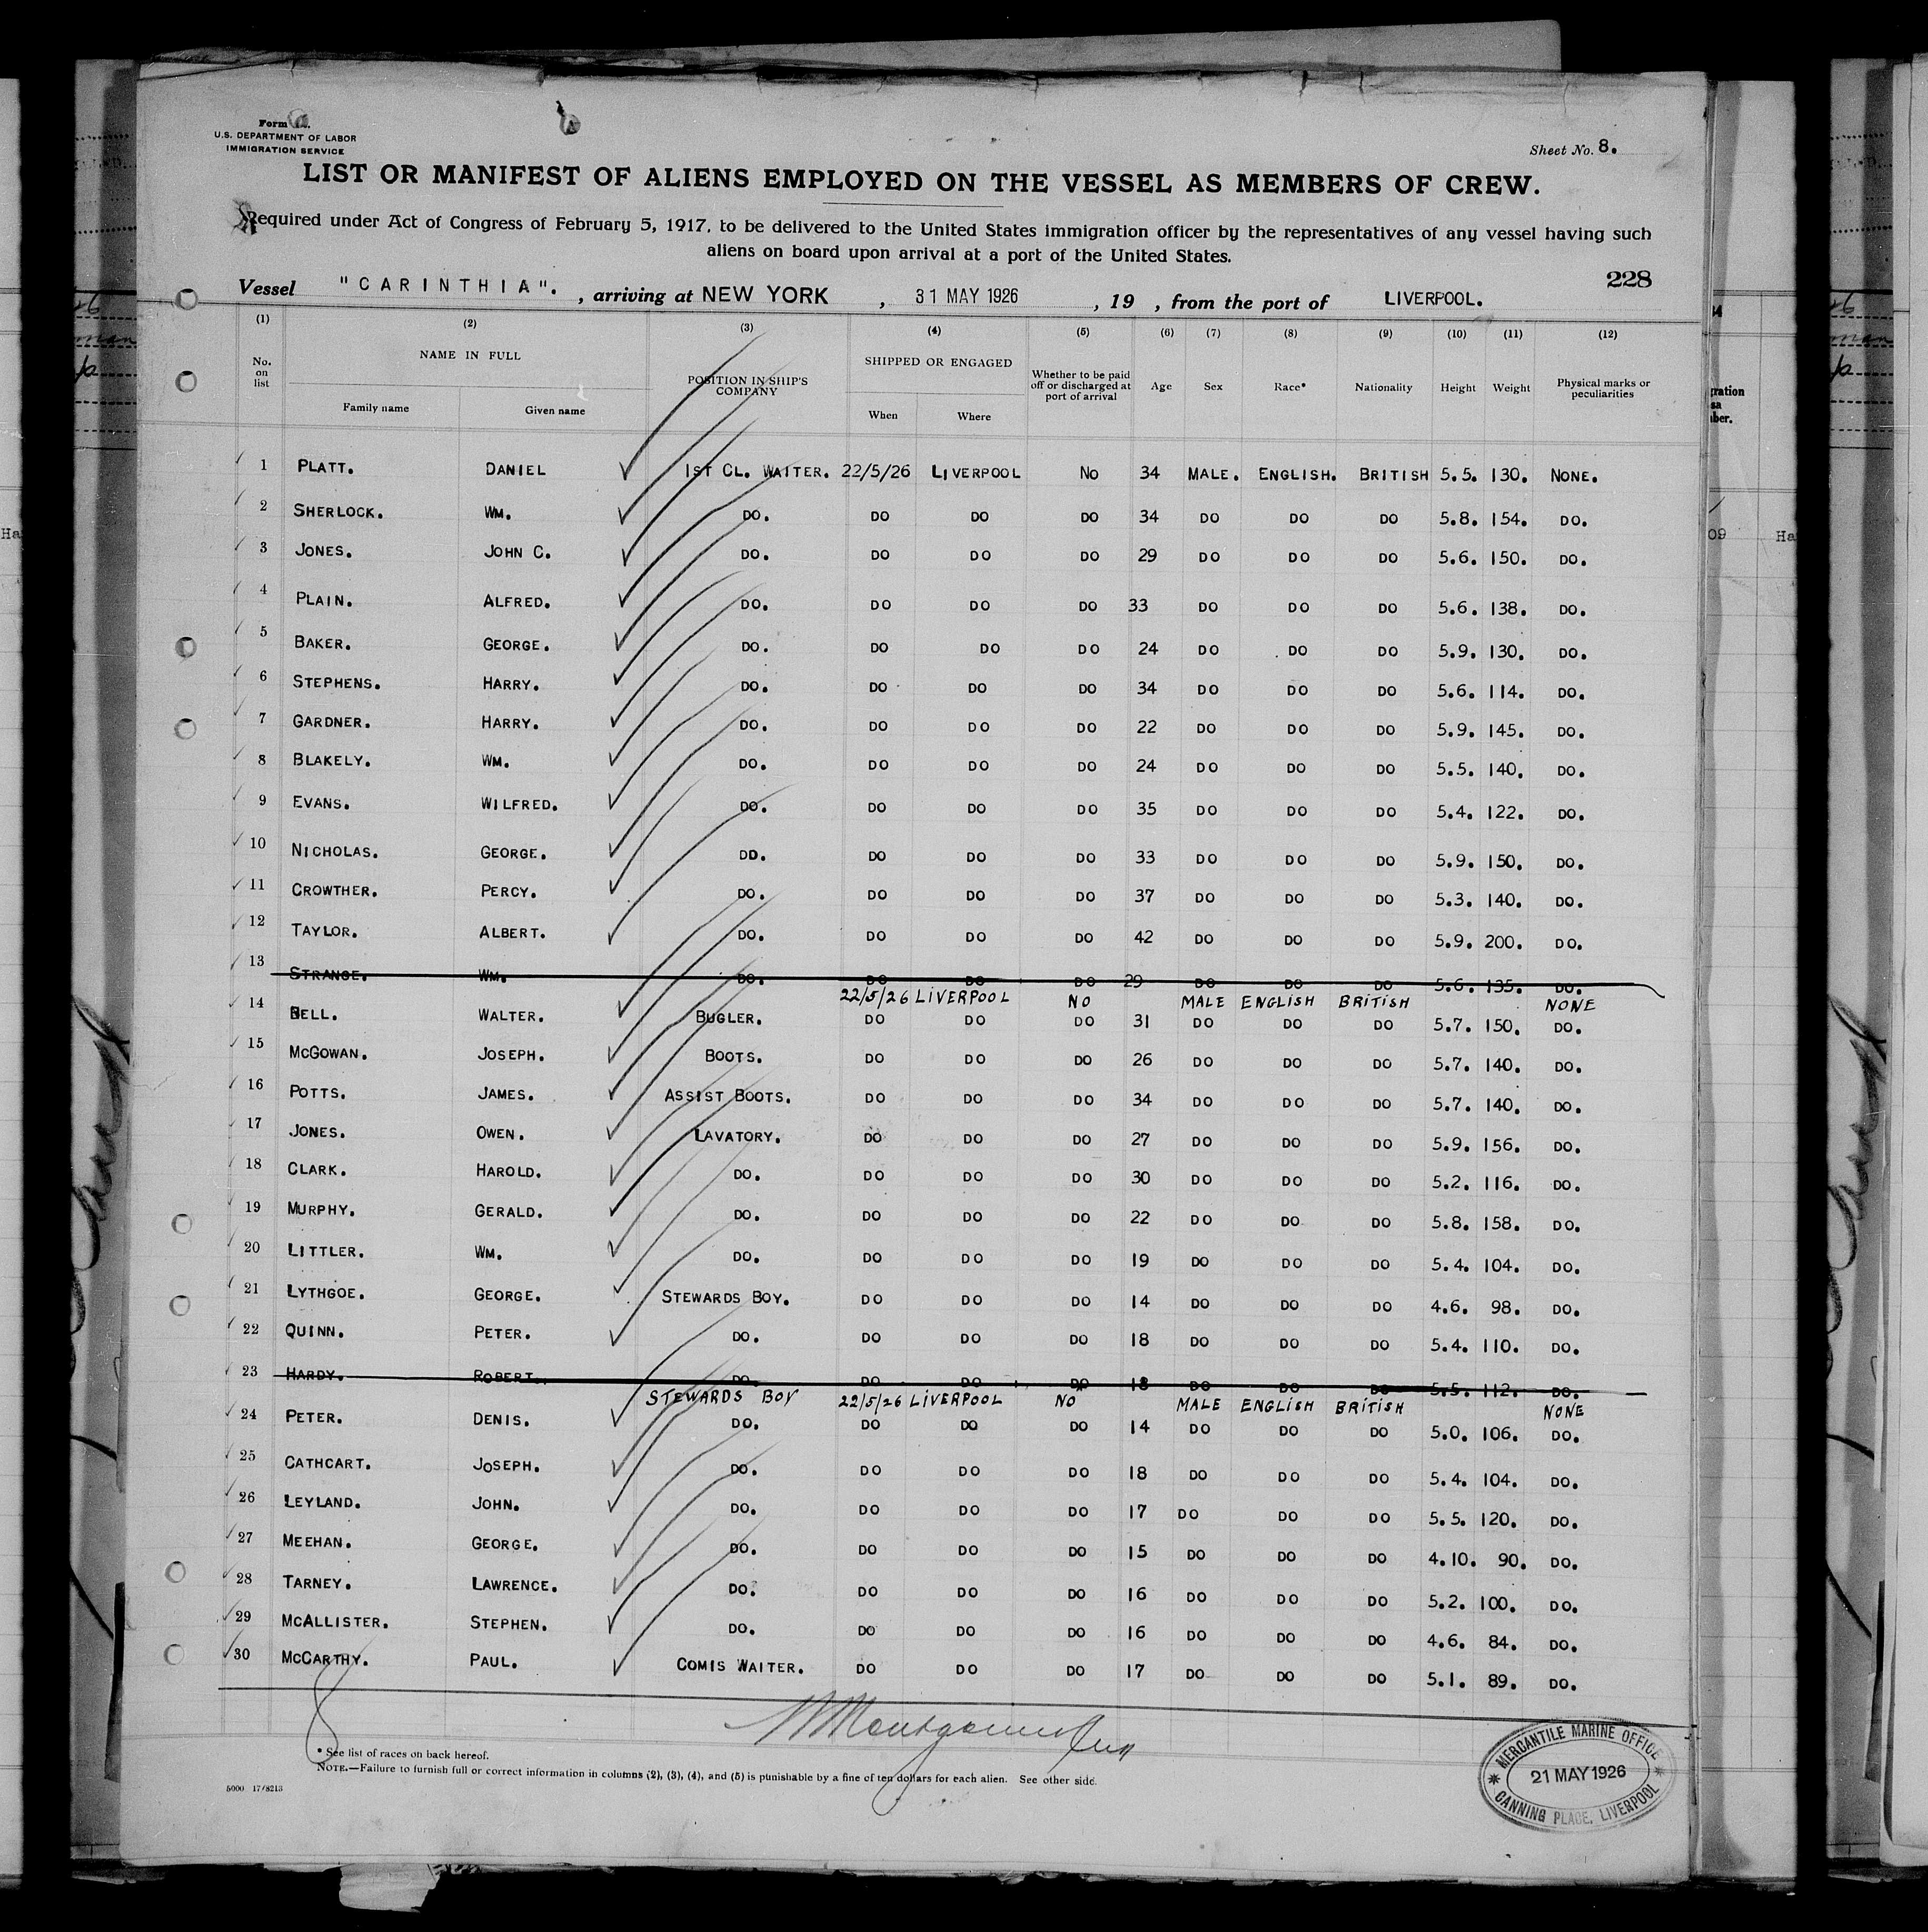 Form
U.S. DEPARTMENT OF LABOR
IMMIGRATION SERVICE
Sheet No. 8.
LIST OR MANIFEST OF ALIENS EMPLOYED ON THE VESSEL AS MEMBERS OF CREW.
Required under Act of Congress of February 5, 1917, to be delivered to the United States immigration officer by the representatives of any vessel having such
aliens on board upon arrival at a port of the United States.
228
Vessel "CARINTHIA". , arriving at NEW YORK , 31 MAY 1926 , 19 , from the port of LIVERPOOL.
(1) (2) (3) (4) (5) (6) (7) (8) (9) (10) (11) (12)
No. on list NAME IN FULL Family name Given name POSITION IN SHIP'S COMPANY SHIPPED OR ENGAGED When Where Whether to be paid off or discharged at port of arrival Age Sex Race* Nationality Height Weight Physical marks or peculiarities
1 PLATT. DANIEL 1ST CL. WAITER. 22/5/26 LIVERPOOL NO 34 MALE. ENGLISH. BRITISH 5.5. 130. NONE.
2 SHERLOCK. WM. DO. DO DO DO 34 DO DO DO 5.8. 154. DO.
3 JONES. JOHN C. DO. DO DO DO 29 DO DO DO 5.6. 150. DO.
4 PLAIN. ALFRED. DO. DO DO DO 33 DO DO DO 5.6. 138. DO.
5 BAKER. GEORGE. DO. DO DO DO 24 DO DO DO 5.9. 130. DO.
6 STEPHENS. HARRY. DO. DO DO DO 34 DO DO DO 5.6. 114. DO.
7 GARDNER. HARRY. DO. DO DO DO 22 DO DO DO 5.9. 145. DO.
8 BLAKELY. WM. DO. DO DO DO 24 DO DO DO 5.5. 140. DO.
9 EVANS. WILFRED. DO. DO DO DO 35 DO DO DO 5.4. 122. DO.
10 NICHOLAS. GEORGE. DD. DO DO DO 33 DO DO DO 5.9. 150. DO.
11 CROWTHER. PERCY. DO. DO DO DO 37 DO DO DO 5.3. 140. DO.
12 TAYLOR. ALBERT. DO. DO DO DO 42 DO DO DO 5.9. 200. DO.
13 STRANGE. WM. DO. DO DO DO 29 DO DO DO 5.6. 135. DO.
22/5/26 LIVERPOOL NO MALE ENGLISH BRITISH NONE
14 BELL. WALTER. BUGLER. DO DO DO 31 DO DO DO 5.7. 150. DO.
15 MCGOWAN. JOSEPH. BOOTS. DO DO DO 26 DO DO DO 5.7. 140. DO.
16 POTTS. JAMES. ASSIST BOOTS. DO DO DO 34 DO DO DO 5.7. 140. DO.
17 JONES. OWEN. LAVATORY. DO DO DO 27 DO DO DO 5.9. 156. DO.
18 CLARK. HAROLD. DO. DO DO DO 30 DO DO DO 5.2. 116. DO.
19 MURPHY. GERALD. DO. DO DO DO 22 DO DO DO 5.8. 158. DO.
20 LITTLER. WM. DO. DO DO DO 19 DO DO DO 5.4. 104. DO.
21 LYTHGOE. GEORGE. STEWARDS BOY. DO DO DO 14 DO DO DO 4.6. 98. DO.
22 QUINN. PETER. DO. DO DO DO 18 DO DO DO 5.4. 110. DO.
23 HARDY. ROBERT. DO. DO DO DO 18 DO DO DO 5.5. 112. DO.
STEWARDS BOY 22/5/26 LIVERPOOL NO MALE ENGLISH BRITISH NONE
24 PETER. DENIS. DO. DO DO DO 14 DO DO DO 5.0. 106. DO.
25 CATHCART. JOSEPH. DO. DO DO DO 18 DO DO DO 5.4. 104. DO.
26 LEYLAND. JOHN. DO. DO DO DO 17 DO DO DO 5.5. 120. DO.
27 MEEHAN. GEORGE. DO. DO DO DO 15 DO DO DO 4.10. 90. DO.
28 TARNEY. LAWRENCE. DO. DO DO DO 16 DO DO DO 5.2. 100. DO.
29 MCALLISTER. STEPHEN. DO. DO DO DO 16 DO DO DO 4.6. 84. DO.
30 MCCARTHY. PAUL. COMIS WAITER. DO DO DO 17 DO DO DO 5.1. 89. DO.
* See list of races on back hereof.
NOTE.—Failure to furnish full or correct information in columns (2), (3), (4), and (5) is punishable by a fine of ten dollars for each alien. See other side.
5000 17/8213
MERCANTILE MARINE OFFICE
21 MAY 1926
CANNING PLACE, LIVERPOOL